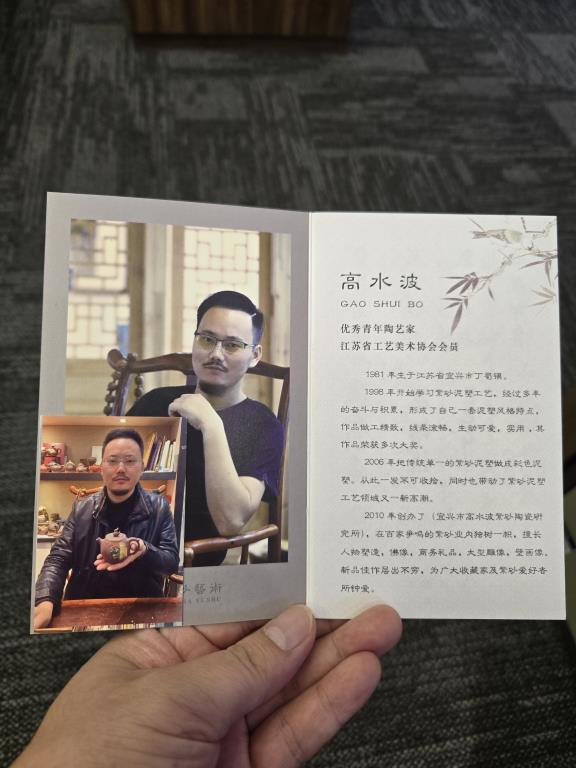 艺術
YISHU
高水波
GAO SHUI BO
优秀青年陶艺家
江苏省工艺美术协会会员
1981年生于江苏省宜兴市丁蜀镇。
1998年开始学习紫砂泥塑工艺，经过多年
的奋斗与积累，形成了自己一套泥塑风格特点，
作品做工精致，线条流畅，生动可爱，实用，其
作品荣获多次大奖。
2006年把传统单一的紫砂泥塑做成彩色泥
塑，从此一发不可收拾，同时也带动了紫砂泥塑
工艺领域又一新高潮。
2010年创办了（宜兴市高水波紫砂陶瓷研
究所），在百家争鸣的紫砂业内独树一帜，擅长
人物塑造，佛像，商务礼品，大型雕像，壁画像。
新品佳作层出不穷，为广大收藏家及紫砂爱好者
所钟爱。